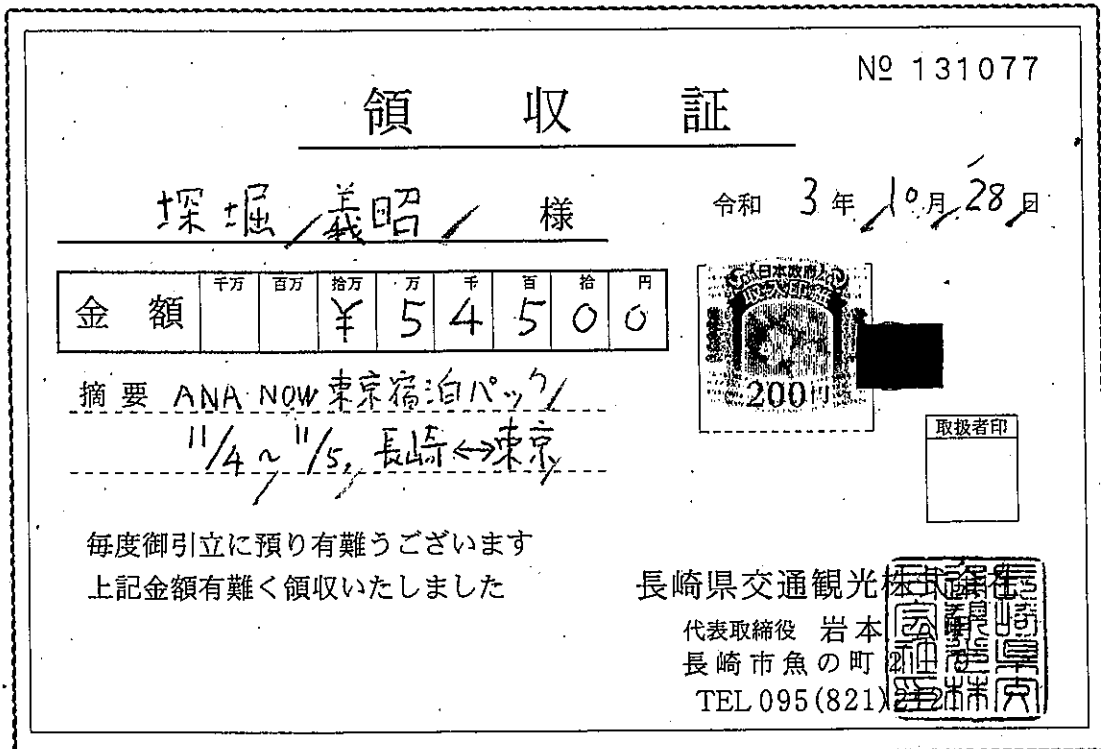 № 131077
領 収 証
深堀 義昭 様
令和 3年 10月 28日
金額 千万 百万 拾万 万 千 百 拾 円
¥ 5 4 5 0 0
日本政府
収入印紙
200円
摘要 ANA NOW 東京宿泊パック
11/4～11/5, 長崎↔東京
取扱者印
毎度御引立に預り有難うございます
上記金額有難く領収いたしました
長崎県交通観光株式会社
代表取締役 岩本
長崎市魚の町
TEL 095(821)